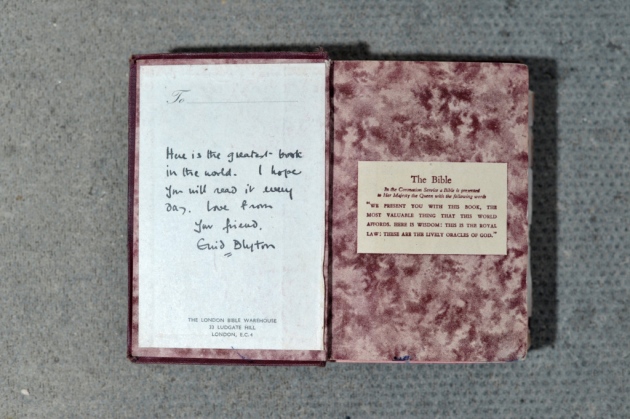 To
Here is the greatest book
in the world. I hope
you will read it every
day. Love from
Your friend,
Enid Blyton
THE LONDON BIBLE WAREHOUSE
23 LUDGATE HILL
LONDON, E.C.4
The Bible
In the Coronation Service a Bible is presented
to Her Majesty the Queen with the following words
"WE PRESENT YOU WITH THIS BOOK, THE
MOST VALUABLE THING THAT THIS WORLD
AFFORDS. HERE IS WISDOM: THIS IS THE ROYAL
LAW: THESE ARE THE LIVELY ORACLES OF GOD."